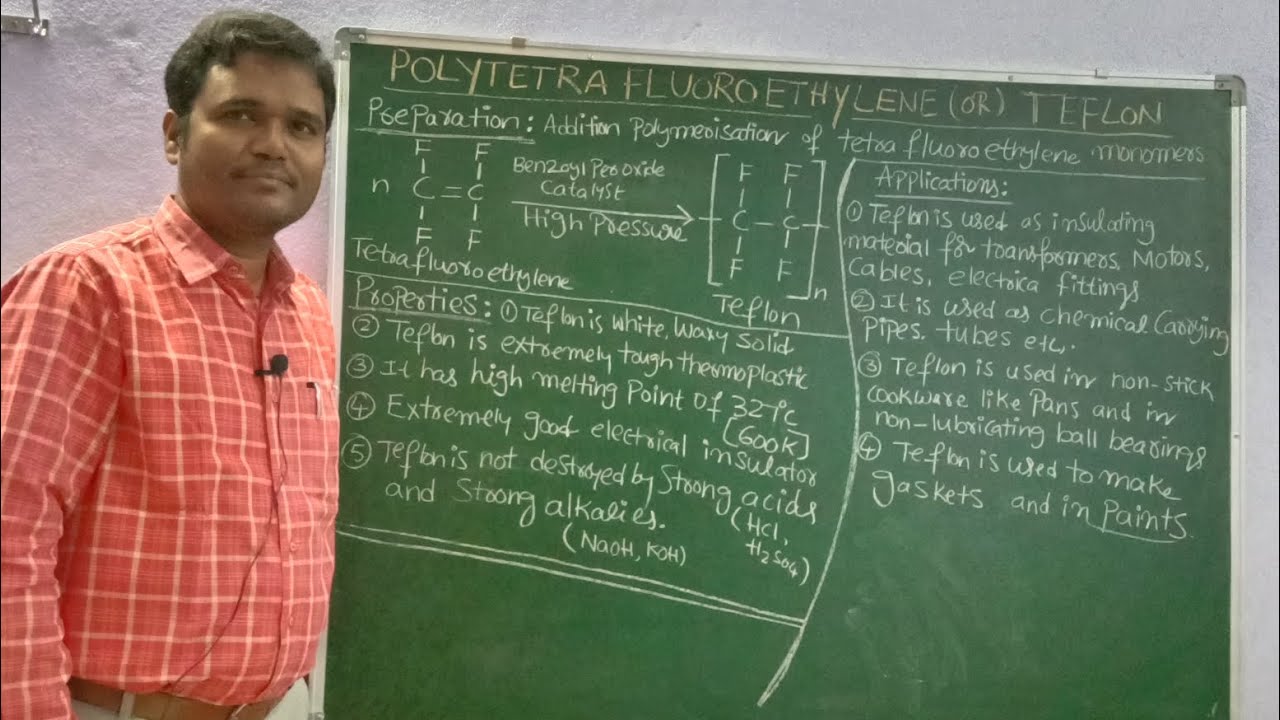 POLYTETRA FLUOROETHYLENE (OR) TEFLON
Preparation: Addition Polymerisation of tetra fluoroethylene monomers
F F
n C = C
F F
Benzoyl Peroxide
Catalyst
High Pressure
F F
C - C
F F
n
Tetrafluoroethylene
Teflon
Properties: ① Teflon is white, waxy solid
② Teflon is extremely tough thermoplastic
③ It has high melting Point of 327°C
[600K]
④ Extremely good electrical insulator
⑤ Teflon is not destroyed by strong acids
and strong alkalies. (HCl,
(NaOH, KOH) H2SO4)
Applications:
① Teflon is used as insulating
material for transformers, Motors,
Cables, electrica fittings
② It is used as chemical Carrying
Pipes, tubes etc,.
③ Teflon is used in non-stick
Cookware like Pans and in
non-lubricating ball bearings
④ Teflon is used to make
gaskets and in Paints.